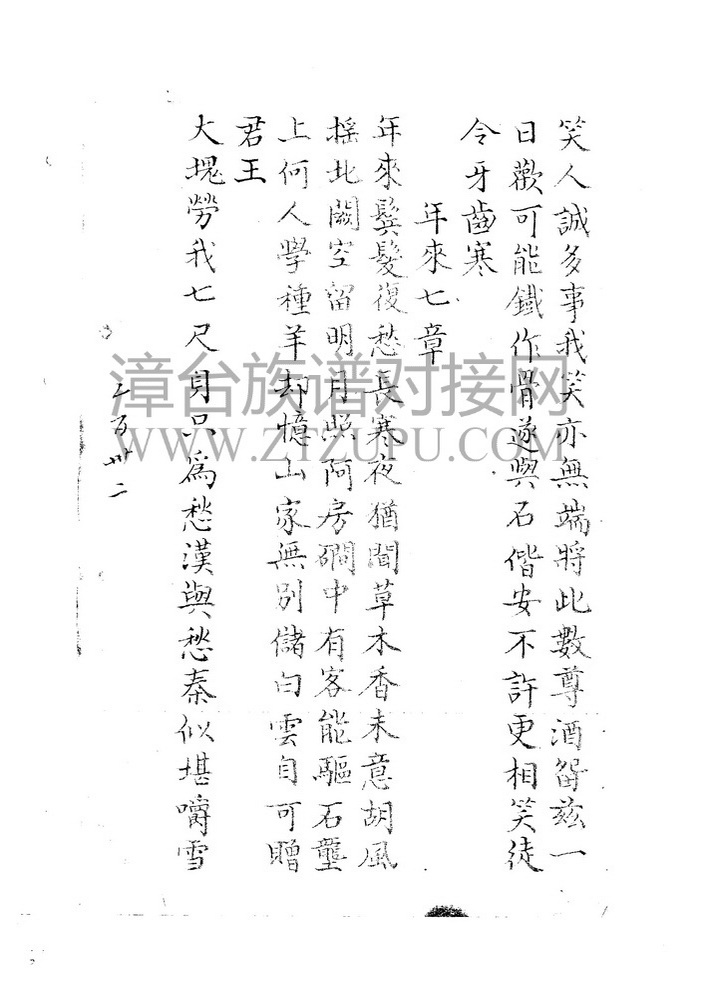 笑人誠多事我笑亦無端將此數尊酒留茲一
日歡可能鐵作骨遂與石偕安不許更相笑徒
令牙齒寒
年來七章
年來鬂髮復愁長寒夜猶聞草木香未意胡風
搖北闕空留明月照阿房磵中有客能驅石壟
上何人學種羊却憶山家無別儲白雲自可贈
君王
大塊勞我七尺身只為愁漢與愁秦似堪嚼雪
二百卅二
漳台族谱对接网
WWW.ZTZUPU.COM